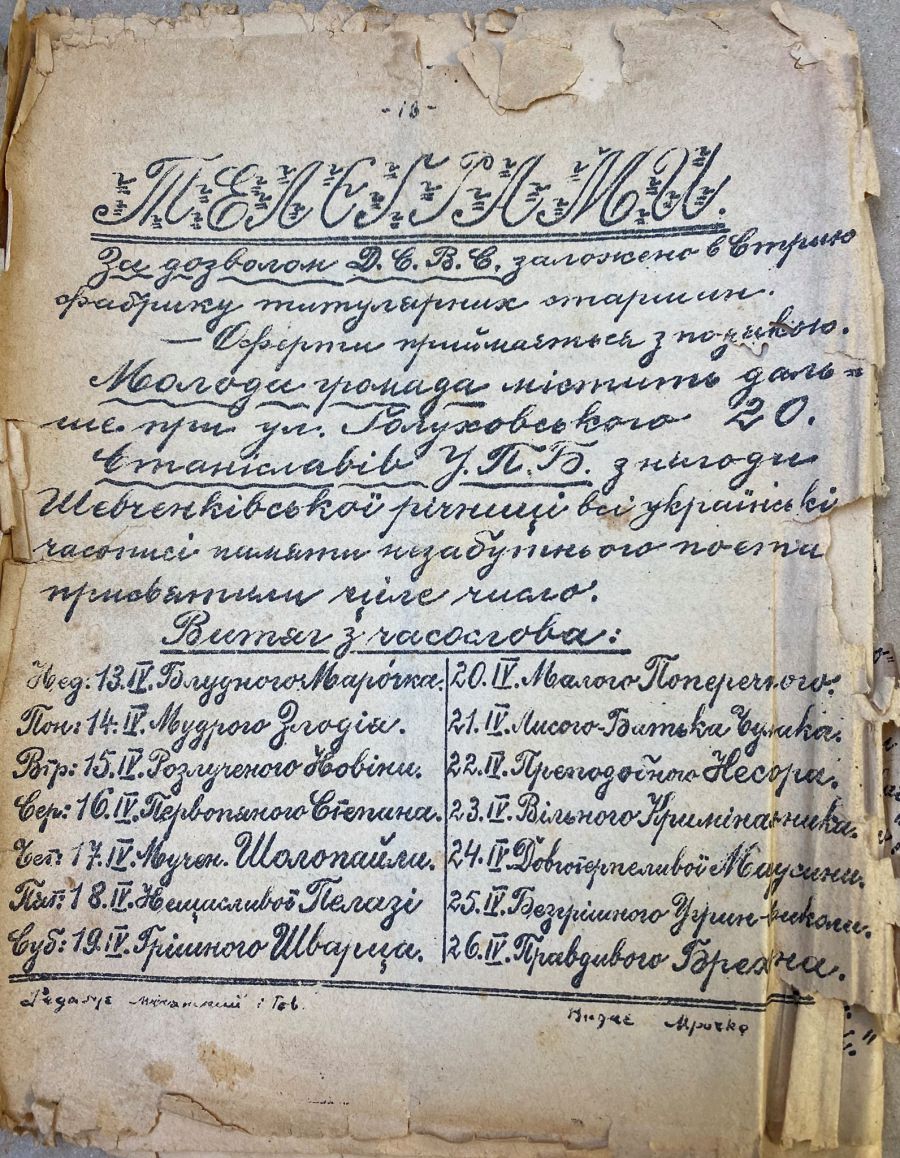 - 18 -
ТЕЛЄҐРАМИ.
За дозволом Д.С.В.С. заложено в Стрию
фабрику титулярних старшин.
— Оферти приймаються з подякою.
Молода громада містить даль=
ше при ул. Голуховського 20.
Станіславів У.П.Б. з нагоди
Шевченківської річниці всі українські
часописі памяти незабутнього поета
присвятили ціле число.
Витяг з часослова:
Нед: 13.IV. Блудного Марочка.
Пон: 14.IV. Мудрого Злодія.
Втр: 15.IV. Розлученого Новіни.
Сер: 16.IV. Первопяного Степана.
Чет: 17.IV. Мучен. Шолопайли.
Пят: 18.IV. Нещасливої Пелазі
Суб: 19.IV. Грішного Шварца.
20.IV. Малого Поперечного.
21.IV. Лисого Батька
22.IV. Преподобного Несора.
23.IV. Вільного Криміналника.
24.IV. Довготерпеливої
25.IV. Безгрішного
26.IV. Правдивого Брехна.
Редаґує і
Видає Мрочко